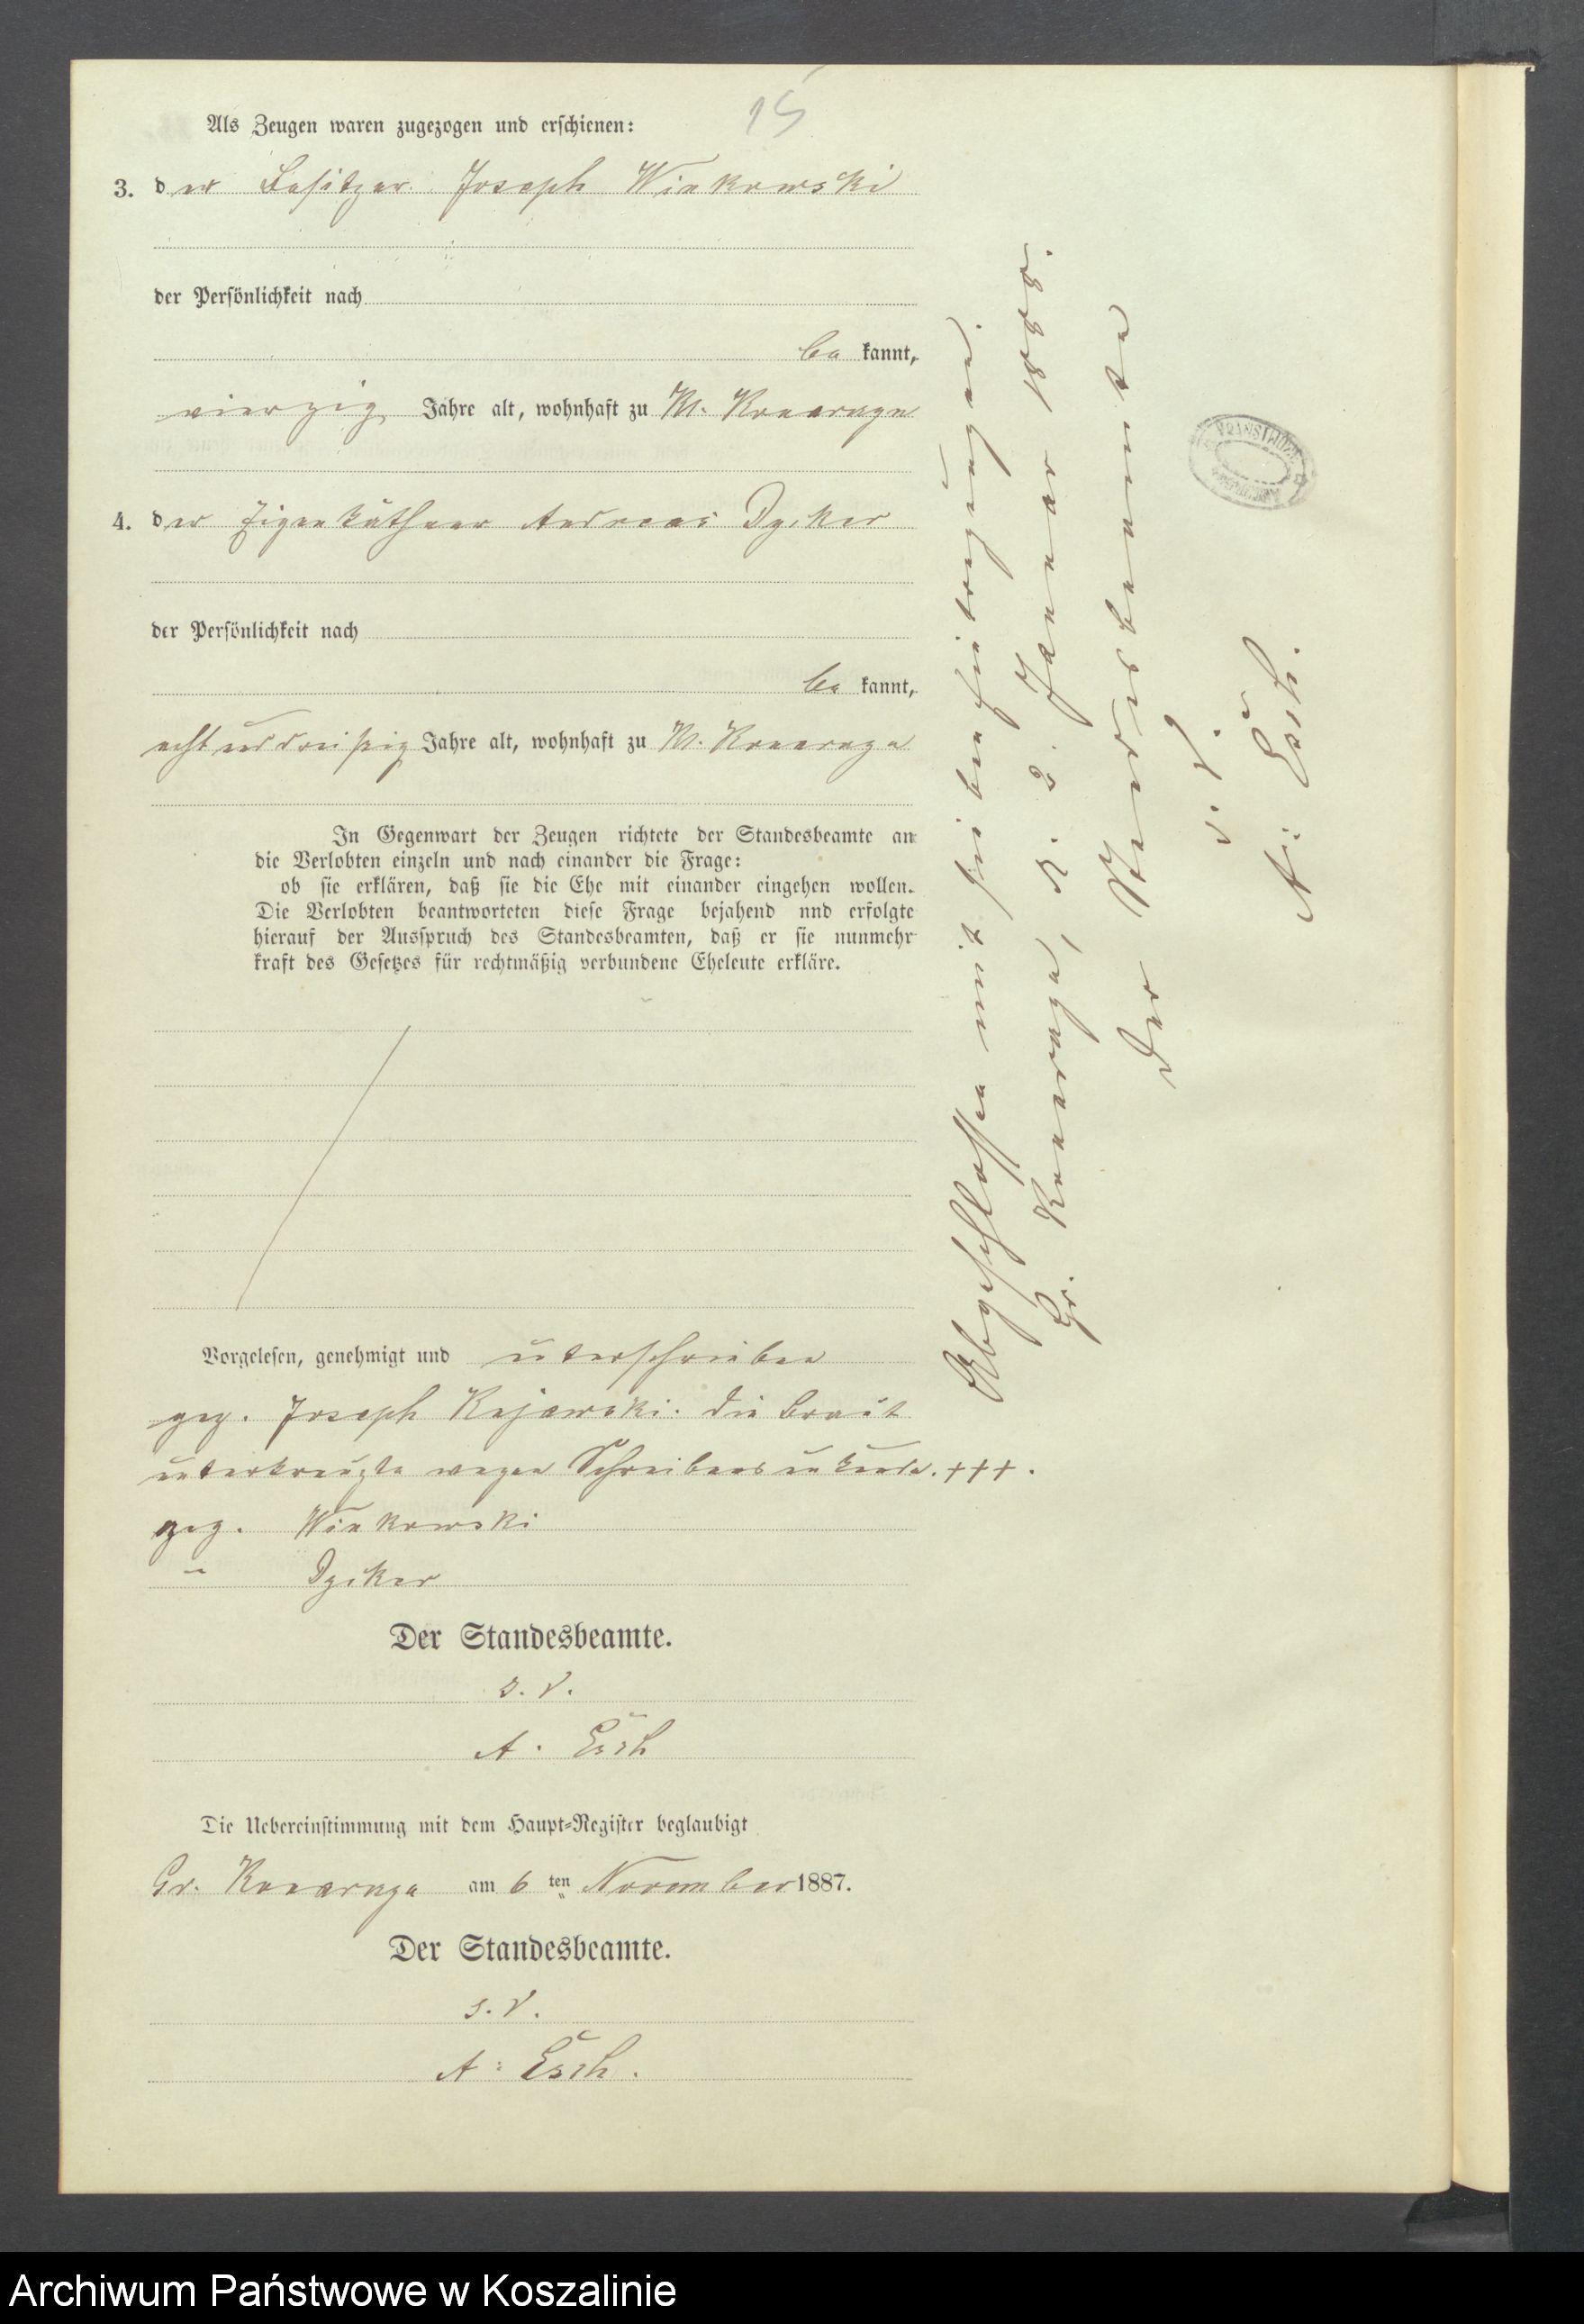 15
Als Zeugen waren zugezogen und erschienen:
3. der Besitzer Joseph Winkowski
der Persönlichkeit nach
be kannt,
vierzig Jahre alt, wohnhaft zu Kl. Konarzyn
4. der Eigenkäthner Andreas Dziker
der Persönlichkeit nach
be kannt,
achtunddreißig Jahre alt, wohnhaft zu Kl. Konarzyn
In Gegenwart der Zeugen richtete der Standesbeamte an
die Verlobten einzeln und nach einander die Frage:
ob sie erklären, daß sie die Ehe mit einander eingehen wollen.
Die Verlobten beantworteten diese Frage bejahend nnd erfolgte
hierauf der Ausspruch des Standesbeamten, daß er sie nunmehr
kraft des Gesetzes für rechtmäßig verbundene Eheleute erkläre.
Vorgelesen, genehmigt und unterschrieben
gez. Joseph Kujawski. Die Braut
unterkreuzte wegen Schreibensunkunde. +++.
gez. Winkowski
" Dziker
Der Standesbeamte.
s. V.
A. Esch
Die Uebereinstimmung mit dem Haupt-Register beglaubigt
Gr. Konarzyn am 6 ten November 1887.
Der Standesbeamte.
s. V.
A: Esch.
Abgeschlossen mit sieben Eintragungen
Gr. Konarzyn, d. 2. Januar 1888.
Der Standesbeamte
s. V.
A: Esch.
Archiwum Państwowe w Koszalinie